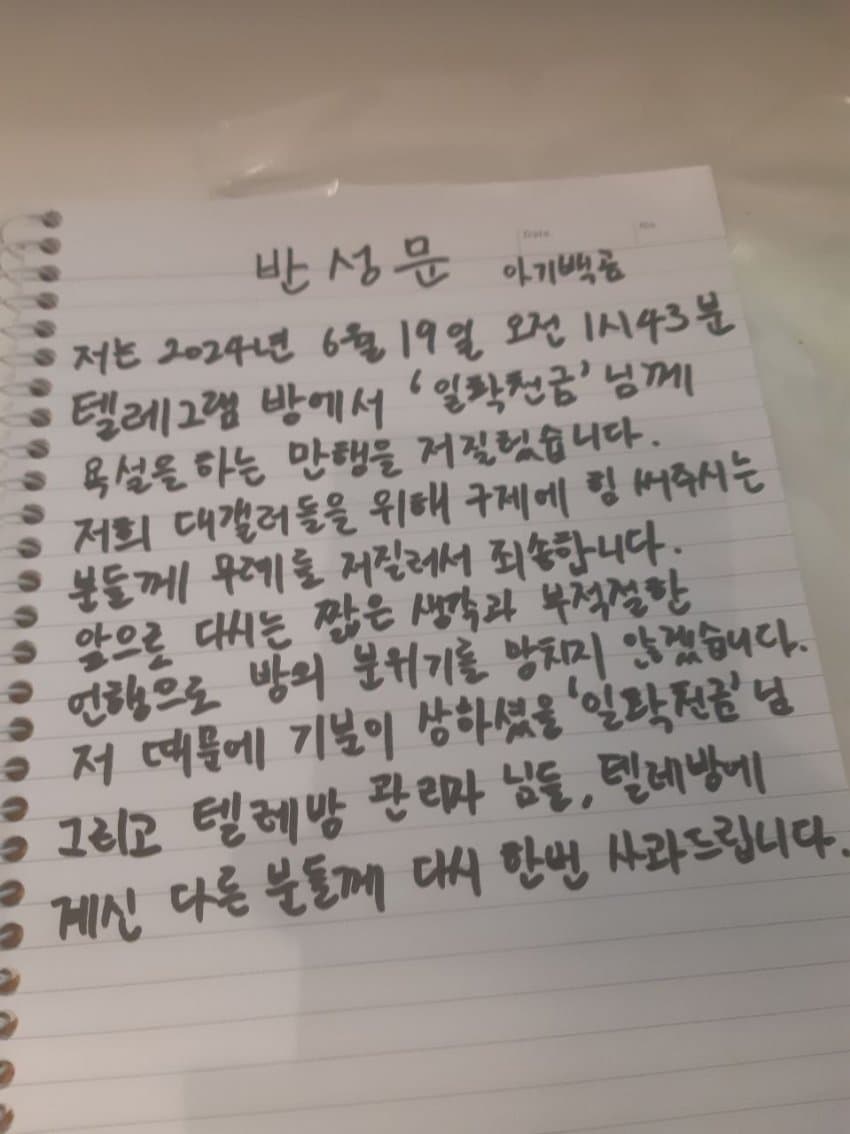 Date No
반성문 아기백곰
저는 2024년 6월 19일 오전 1시43분
텔레그램 방에서 '일확천금'님께
욕설을 하는 만행을 저질렀습니다.
저희 대갤러들을 위해 구제에 힘 써주시는
분들께 무례를 저질러서 죄송합니다.
앞으로 다시는 짧은 생각과 부적절한
언행으로 방의 분위기를 망치지 않겠습니다.
저 때문에 기분이 상하셨을 '일확천금'님
그리고 텔레방 관리자 님들, 텔레방에
계신 다른 분들께 다시 한번 사과드립니다.